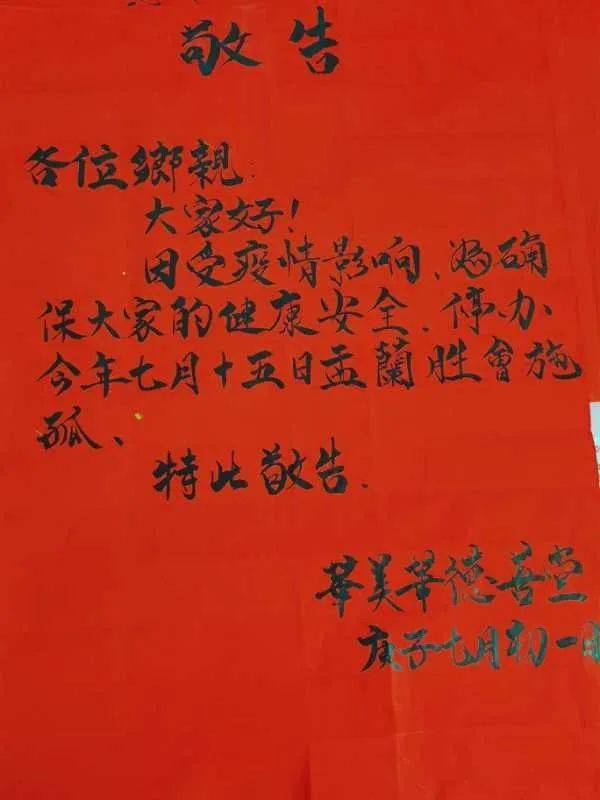 敬告
各位鄉親:
大家好!
因受疫情影响、為确
保大家的健康安全、停办
今年七月十五日盂蘭胜會施
孤、
特此敬告.
華美華德善堂
庚子七月初一日